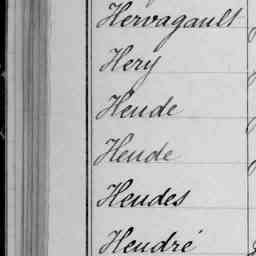 Hervagault
Hery
Heude
Heude
Heudes
Heudré